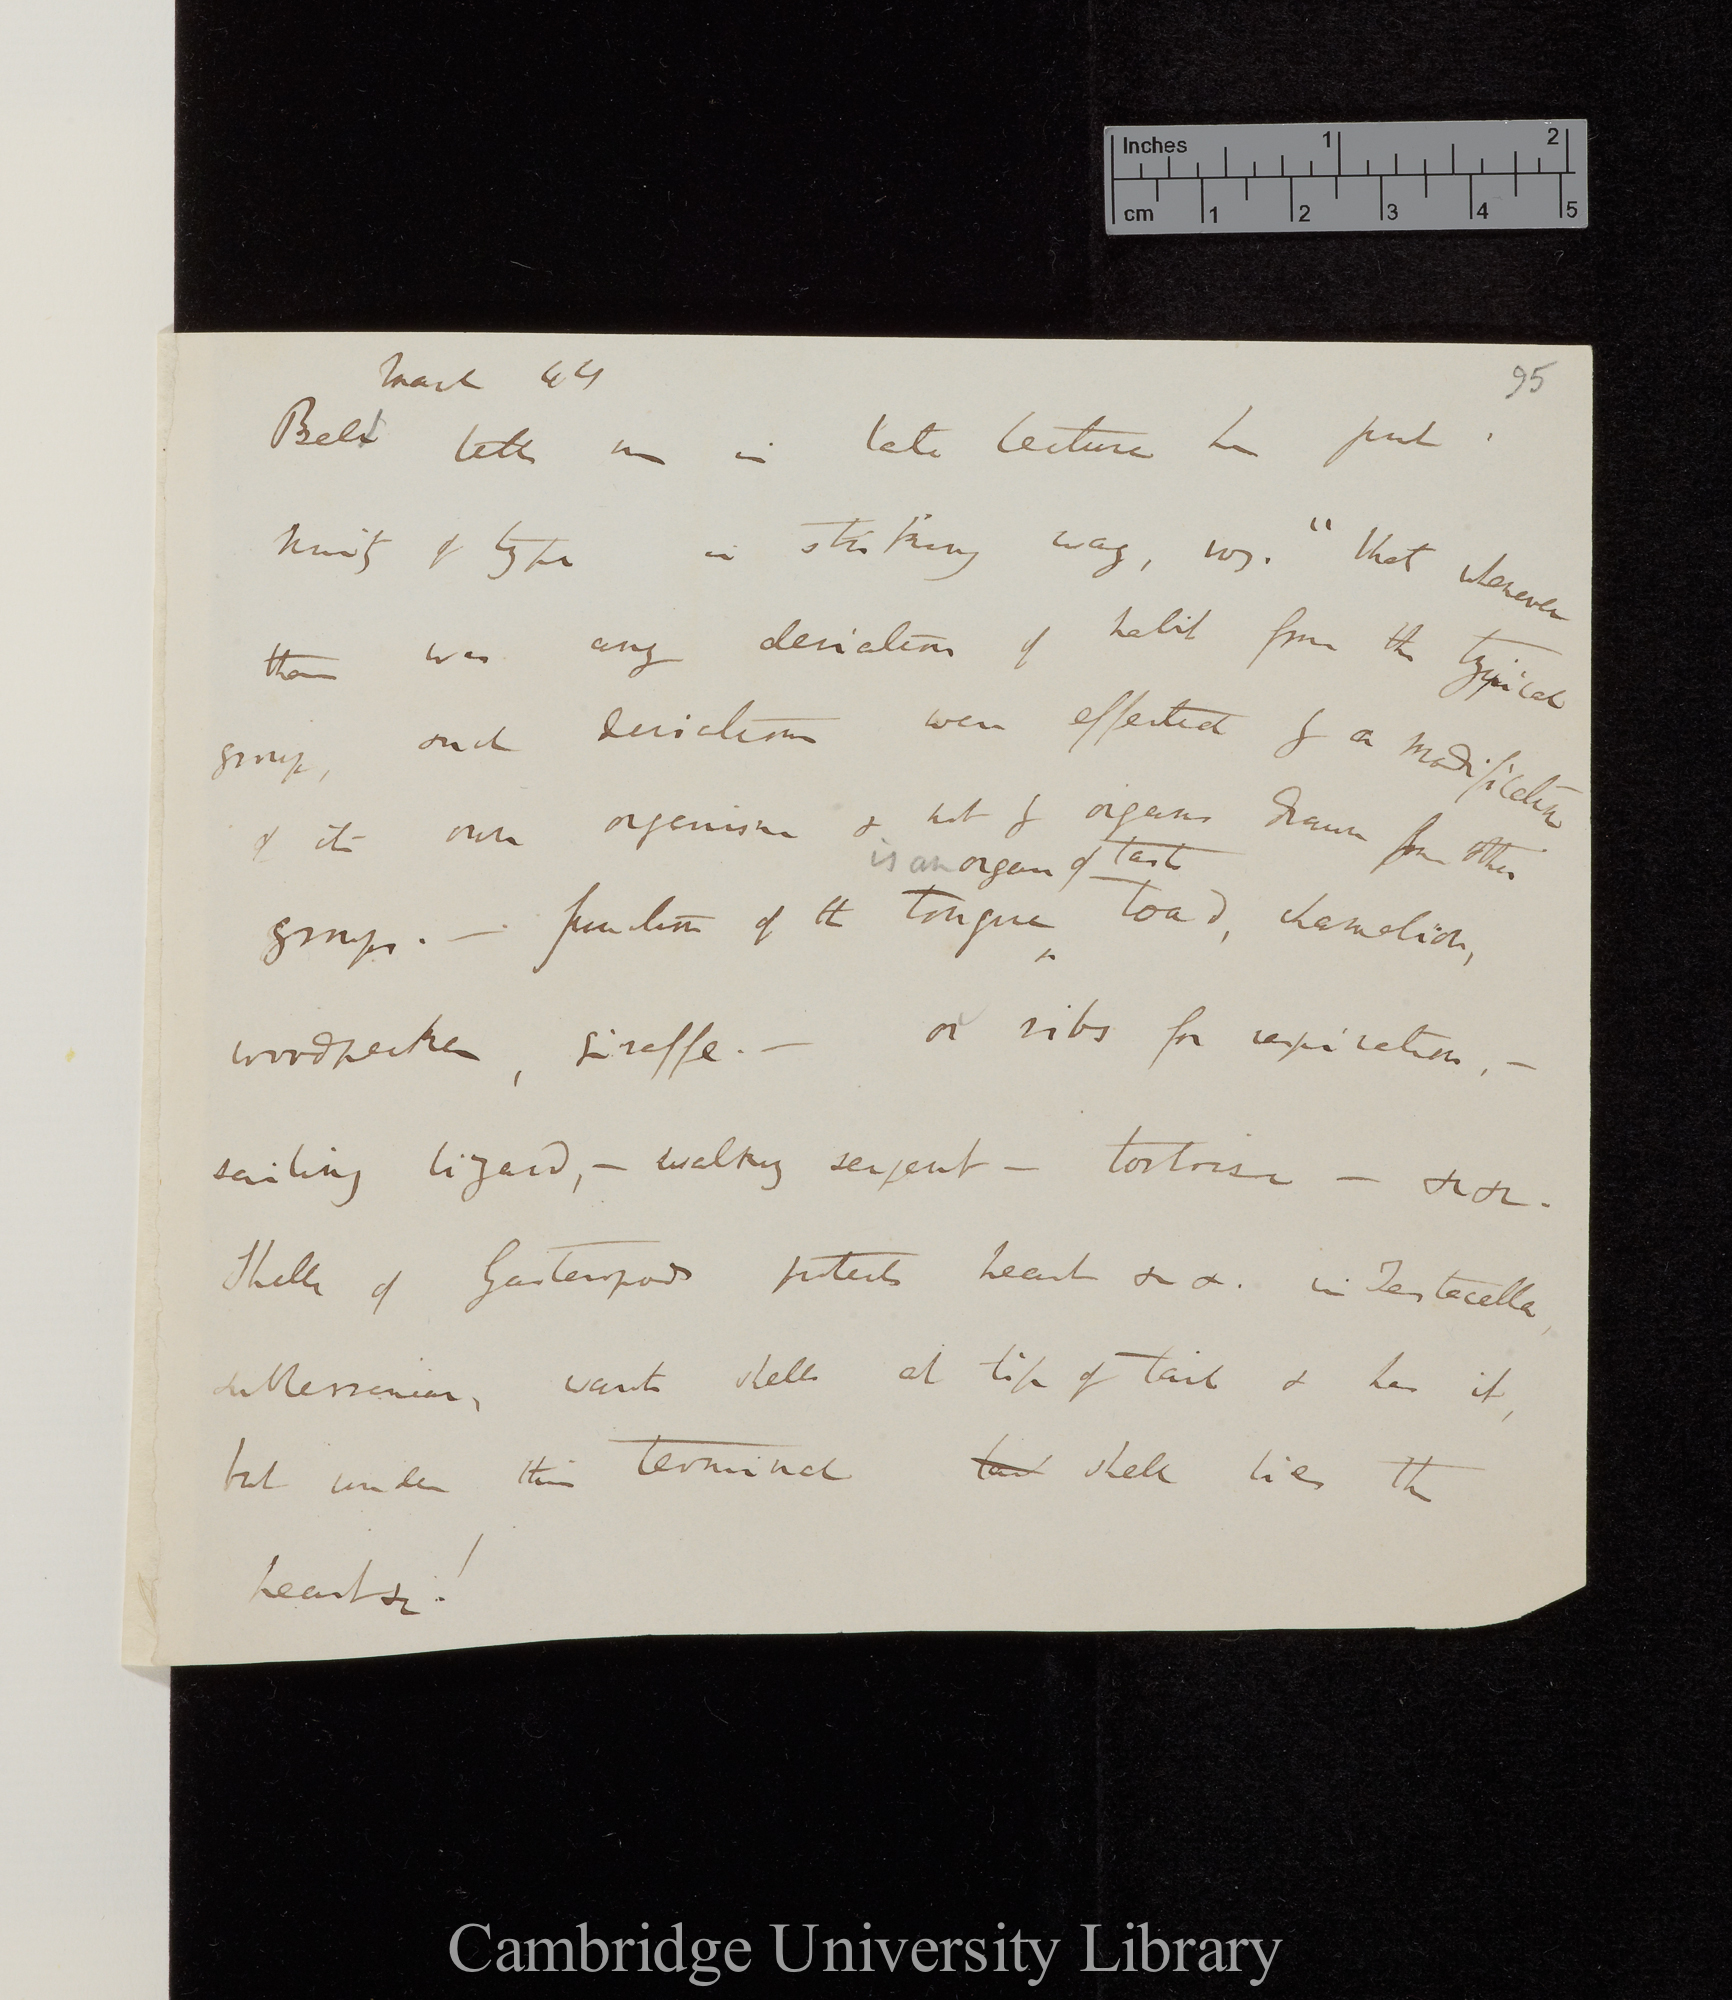 Inches 1 2
cm 1 2 3 4 5
95
March 44
Bell tells me in late lecture he put
Unity of type in striking way, viz. "that whenever
there was any deviation of habit from the typical
group, such deviations were effected by a modification
of its own organism & not by organs drawn from other
is an organ of taste
groups. — function of the tongue ^ toad, chamelion,
woodpecker, Giraffe. — or ribs for respiration, —
sailing lizard, — walking serpent — tortoise — &c &c.
Shells of Gasteropods protects heart &c &. in Testacella,
subterranean, wants shell at tip of tail & has it,
but under this terminal tail shell lies the
heart &c.!
Cambridge University Library